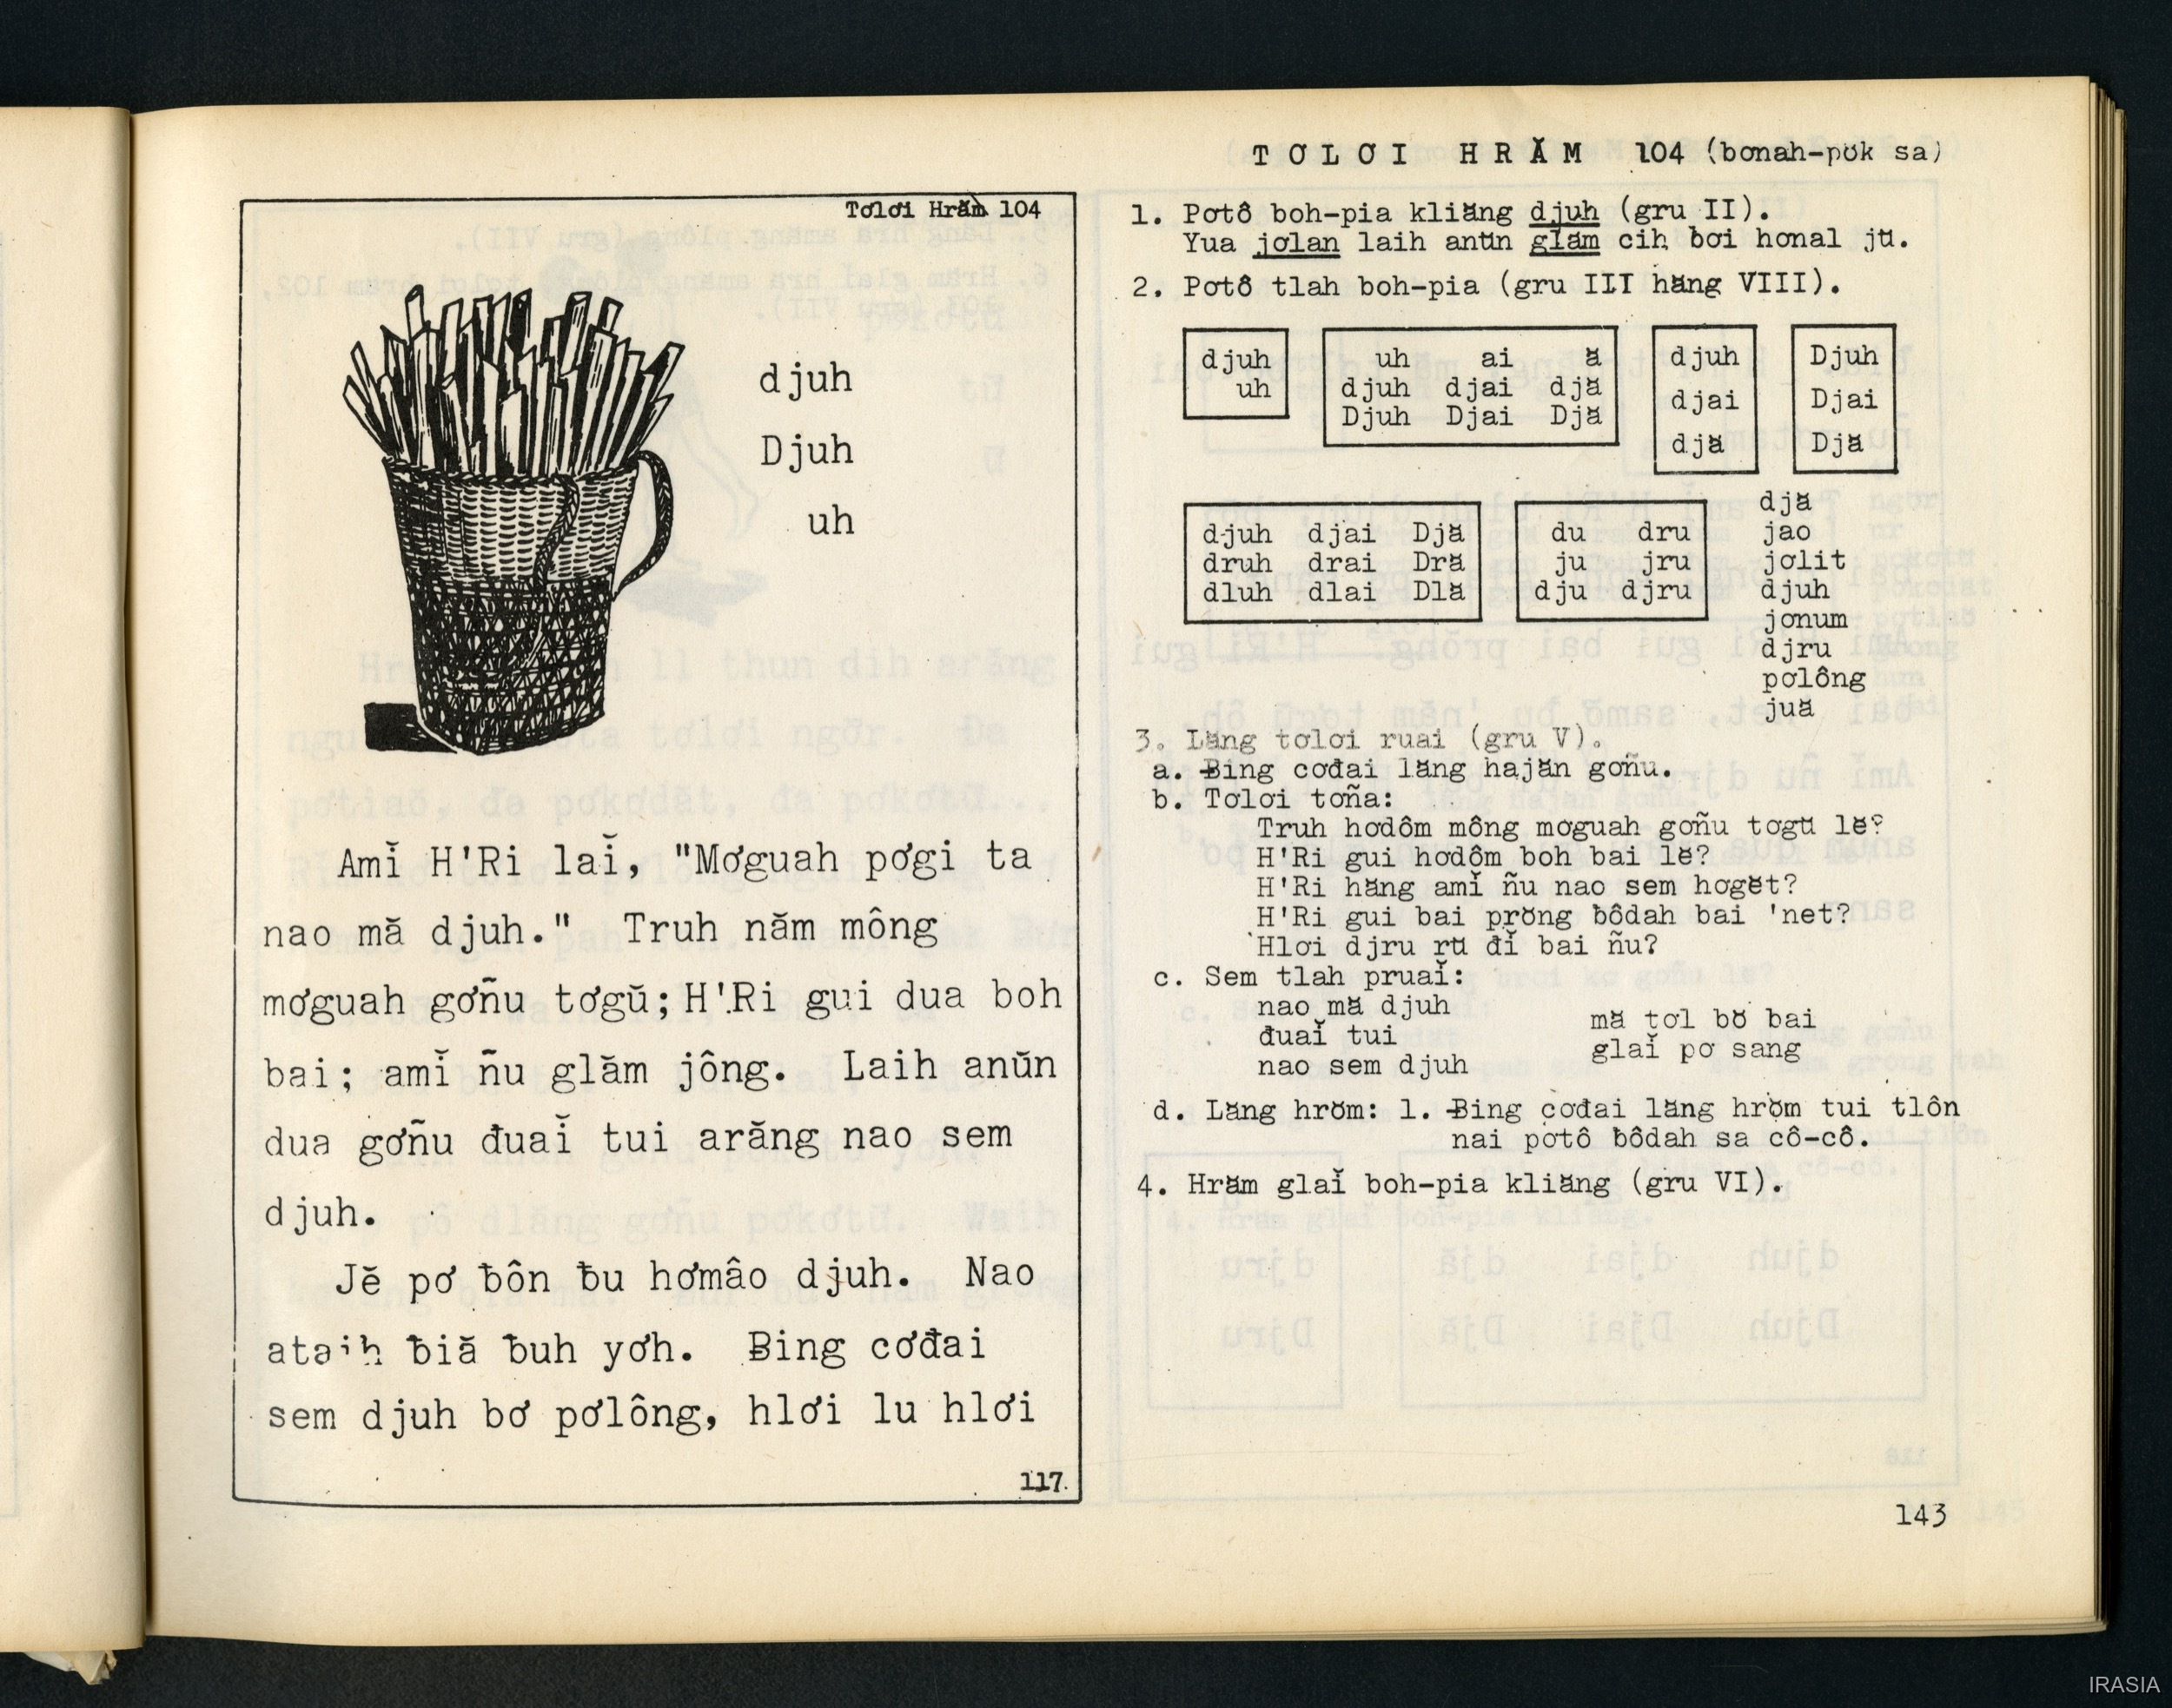 Tơlơi Hrăm 104
djuh
Djuh
uh
Amĭ H'Ri laĭ, "Mơguah pơgi ta
nao mă djuh." Truh năm mông
mơguah gơñu tơgŭ; H'Ri gui dua boh
bai; amĭ ñu glăm jông. Laih anŭn
dua gơñu đuaĭ tui arăng nao sem
djuh.
Jĕ pơ ƀôn ƀu hơmâo djuh. Nao
ataih ƀiă ƀuh yơh. Ƀing cơđai
sem djuh bơ pơlông, hlơi lu hlơi
117.
TƠLƠI HRĂM 104 (bơnah-pŏk sa)
1. Pơtô boh-pia kliăng djuh (gru II).
Yua jơlan laih anŭn glăm cih bơi hơnal jŭ.
2. Pơtô tlah boh-pia (gru III hăng VIII).
djuh
uh
uh ai ă
djuh djai djă
Djuh Djai Djă
djuh
djai
djă
Djuh
Djai
Djă
djuh djai Djă
druh drai Dră
dluh dlai Dlă
du dru
ju jru
dju djru
djă
jao
jơlit
djuh
jơnum
djru
pơlông
juă
3. Lăng tơlơi ruai (gru V).
a. Ƀing cơđai lăng hajăn gơñu.
b. Tơlơi tơña:
Truh hơdôm mông mơguah gơñu tơgŭ lĕ?
H'Ri gui hơdôm boh bai lĕ?
H'Ri hăng amĭ ñu nao sem hơgĕt?
H'Ri gui bai prŏng ƀôdah bai 'net?
Hlơi djru rŭ đĭ bai ñu?
c. Sem tlah pruaĭ:
nao mă djuh
đuaĭ tui
nao sem djuh
mă tơl bŏ bai
glaĭ pơ sang
d. Lăng hrŏm: 1. Ƀing cơđai lăng hrŏm tui tlôn
nai pơtô ƀôdah sa cô-cô.
4. Hrăm glaĭ boh-pia kliăng (gru VI).
143
IRASIA